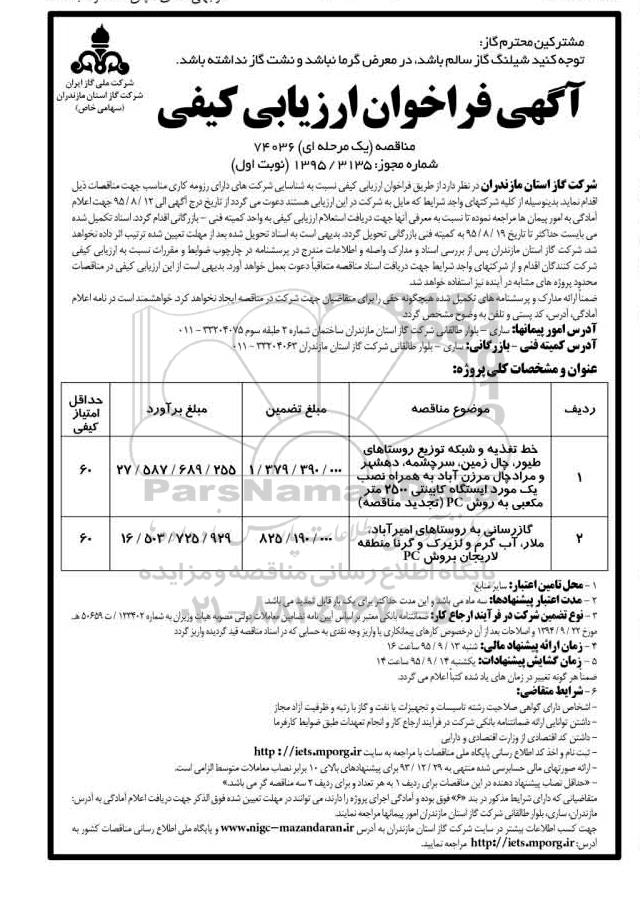 مشترکین محترم گاز:
توجه کنید شیلنگ گاز سالم باشد، در معرض گرما نباشد و نشت گاز نداشته باشد.
شرکت ملی گاز ایران
شرکت گاز استان مازندران
(سهامی خاص)
آگهی فراخوان ارزیابی کیفی
مناقصه (یک مرحله ای) ۷۴۰۳۶
شماره مجوز: ۱۳۹۵/۳۱۳۵ (نوبت اول)
شرکت گاز استان مازندران در نظر دارد از طریق فراخوان ارزیابی کیفی نسبت به شناسایی شرکت های دارای رزومه کاری مناسب جهت مناقصات ذیل
اقدام نماید. بدینوسیله از کلیه شرکتهای واجد شرایط که مایل به شرکت در این ارزیابی هستند دعوت می گردد از تاریخ درج آگهی الی ۱۲ / ۸ / ۹۵ جهت اعلام
آمادگی به امور پیمان ها مراجعه نموده تا نسبت به معرفی آنها جهت دریافت استعلام ارزیابی کیفی به واحد کمیته فنی - بازرگانی اقدام گردد. اسناد تکمیل شده
می بایست حداکثر تا تاریخ ۱۹ / ۸ / ۹۵ به کمیته فنی بازرگانی تحویل گردد. بدیهی است به اسناد تحویل شده بعد از مهلت تعیین شده ترتیب اثر داده نخواهد
شد. شرکت گاز استان مازندران پس از بررسی اسناد و مدارک واصله و اطلاعات مندرج در پرسشنامه در چارچوب ضوابط و مقررات نسبت به ارزیابی کیفی
شرکت کنندگان اقدام و از شرکتهای واجد شرایط جهت دریافت اسناد مناقصه متعاقباً دعوت بعمل خواهد آورد. بدیهی است از این ارزیابی کیفی در مناقصات
محدود پروژه های مشابه در آینده نیز استفاده خواهد شد.
ضمناً ارائه مدارک و پرسشنامه های تکمیل شده هیچگونه حقی را برای متقاضیان جهت شرکت در مناقصه ایجاد نخواهد کرد. خواهشمند است در نامه اعلام
آمادگی، آدرس، کد پستی و تلفن به وضوح مشخص گردد.
آدرس امور پیمانها: ساری - بلوار طالقانی شرکت گاز استان مازندران ساختمان شماره ۲ طبقه سوم ۳۳۲۰۴۰۷۵ - ۰۱۱
آدرس کمیته فنی - بازرگانی: ساری - بلوار طالقانی شرکت گاز استان مازندران ۳۳۲۰۴۰۶۳ - ۰۱۱
عنوان و مشخصات کلی پروژه:
ردیف موضوع مناقصه مبلغ تضمین مبلغ برآورد حداقل امتیاز کیفی
۱ خط تغذیه و شبکه توزیع روستاهای
طیور، چال زمین، سرچشمه، دهشهر
و مرادچال مرزن آباد به همراه نصب
یک مورد ایستگاه کابینتی ۲۵۰ متر
مکعبی به روش PC (تجدید مناقصه)
۱ / ۳۷۹ / ۳۹۰ / ۰۰۰ ۲۷ / ۵۸۷ / ۶۸۹ / ۲۵۵ ۶۰
۲ گازرسانی به روستاهای امیرآباد،
ملار، آب گرم و لزیرک و گرنا منطقه
لاریجان بروش PC
۸۲۵ / ۱۹۰ / ۰۰۰ ۱۶ / ۵۰۳ / ۷۲۵ / ۹۲۹ ۶۰
۱ - محل تامین اعتبار: سایر منابع
۲ - مدت اعتبار پیشنهادها: سه ماه می باشد و این مدت حداکثر برای یک بار قابل تمدید می باشد.
۳ - نوع تضمین شرکت در فرآیند ارجاع کار: ضمانتنامه بانکی معتبر بر اساس آیین نامه تضامین معاملات دولتی مصوبه هیات وزیران به شماره ۱۲۳۴۰۲ / ت ۵۰۶۵۹ هـ
مورخ ۲۲ / ۹ / ۱۳۹۴ و اصلاحات بعد از آن درخصوص کارهای پیمانکاری یا واریز وجه نقدی به حسابی که در اسناد مناقصه قید گردیده واریز گردد
۴ - زمان ارائه پیشنهاد مالی: شنبه ۱۳ / ۹ / ۹۵ ساعت ۱۶
۵ - زمان گشایش پیشنهادات: یکشنبه ۱۴ / ۹ / ۹۵ ساعت ۱۴
ضمنا هر گونه تغییر در زمان های یاد شده کتباً اعلام می گردد.
۶ - شرایط متقاضی:
- اشخاص دارای گواهی صلاحیت رشته تاسیسات و تجهیزات یا نفت و گاز با رتبه و ظرفیت آزاد مجاز
- داشتن توانایی ارائه ضمانتنامه بانکی شرکت در فرآیند ارجاع کار و انجام تعهدات طبق ضوابط کارفرما
- داشتن کد اقتصادی از وزارت اقتصادی و دارایی
- ثبت نام و اخذ کد اطلاع رسانی پایگاه ملی مناقصات با مراجعه به سایت http ://iets.mporg.ir
- ارائه صورتهای مالی حسابرسی شده منتهی به ۲۹ / ۱۲ / ۹۳ برای پیشنهادهای بالای ۱۰ برابر نصاب معاملات متوسط الزامی است.
- «حداقل نصاب پیشنهاد دهنده در این مناقصات برای ردیف ۱ به هر تعداد و برای ردیف ۲ سه مناقصه گر می باشد.»
متقاضیانی که دارای شرایط مذکور در بند «۶» فوق بوده و آمادگی اجرای پروژه را دارند، می توانند در مهلت تعیین شده فوق الذکر جهت دریافت اعلام آمادگی به آدرس:
مازندران، ساری، بلوار طالقانی شرکت گاز استان مازندران امور پیمانها مراجعه نمایند.
جهت کسب اطلاعات بیشتر در سایت شرکت گاز استان مازندران به آدرس www.nigc-mazandaran.ir و پایگاه ملی اطلاع رسانی مناقصات کشور به
آدرس: http://iets.mporg.ir مراجعه نمایید.